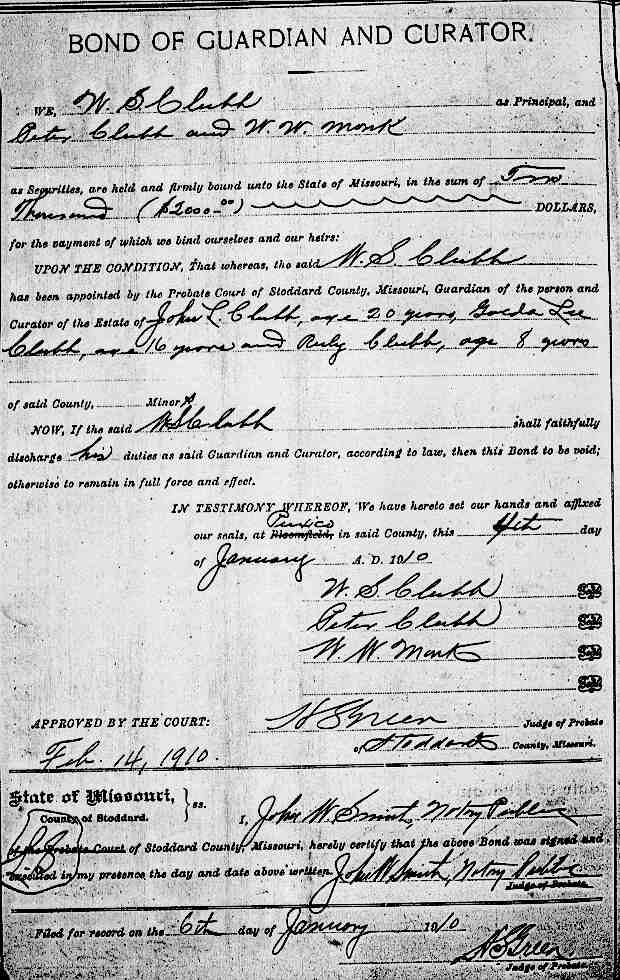 BOND OF GUARDIAN AND CURATOR.
WE, W. S. Clubb as Principal, and
Peter Clubb and W. W. Monk
as Securities, are held and firmly bound unto the State of Missouri, in the sum of Two
Thousand ($2000.00) DOLLARS,
for the payment of which we bind ourselves and our heirs:
UPON THE CONDITION, That whereas, the said W. S. Clubb
has been appointed by the Probate Court of Stoddard County, Missouri, Guardian of the person and
Curator of the Estate of John L. Clubb, age 20 years, Goelda Lee
Clubb, age 16 years and Ruby Clubb, age 8 years
of said County, Minors
NOW, If the said W S Clubb shall faithfully
discharge his duties as said Guardian and Curator, according to law, then this Bond to be void;
otherwise to remain in full force and effect.
IN TESTIMONY WHEREOF, We have hereto set our hands and affixed
Puxico
our seals, at Bloomfield, in said County, this 4th day
of January A. D. 1910
W. S. Clubb Seal
Peter Clubb Seal
W. W. Monk Seal
Seal
APPROVED BY THE COURT: Green Judge of Probate
Feb. 14, 1910. of Stoddard County, Missouri.
State of Missouri, ss.
County of Stoddard. I, John W Smith, Notry Public
of the Probate Court of Stoddard County, Missouri, hereby certify that the above Bond was signed and
executed in my presence the day and date above written. John W Smith, Notry Public
Judge of Probate.
Filed for record on the 6th day of January 1910
Green
Judge of Probate.